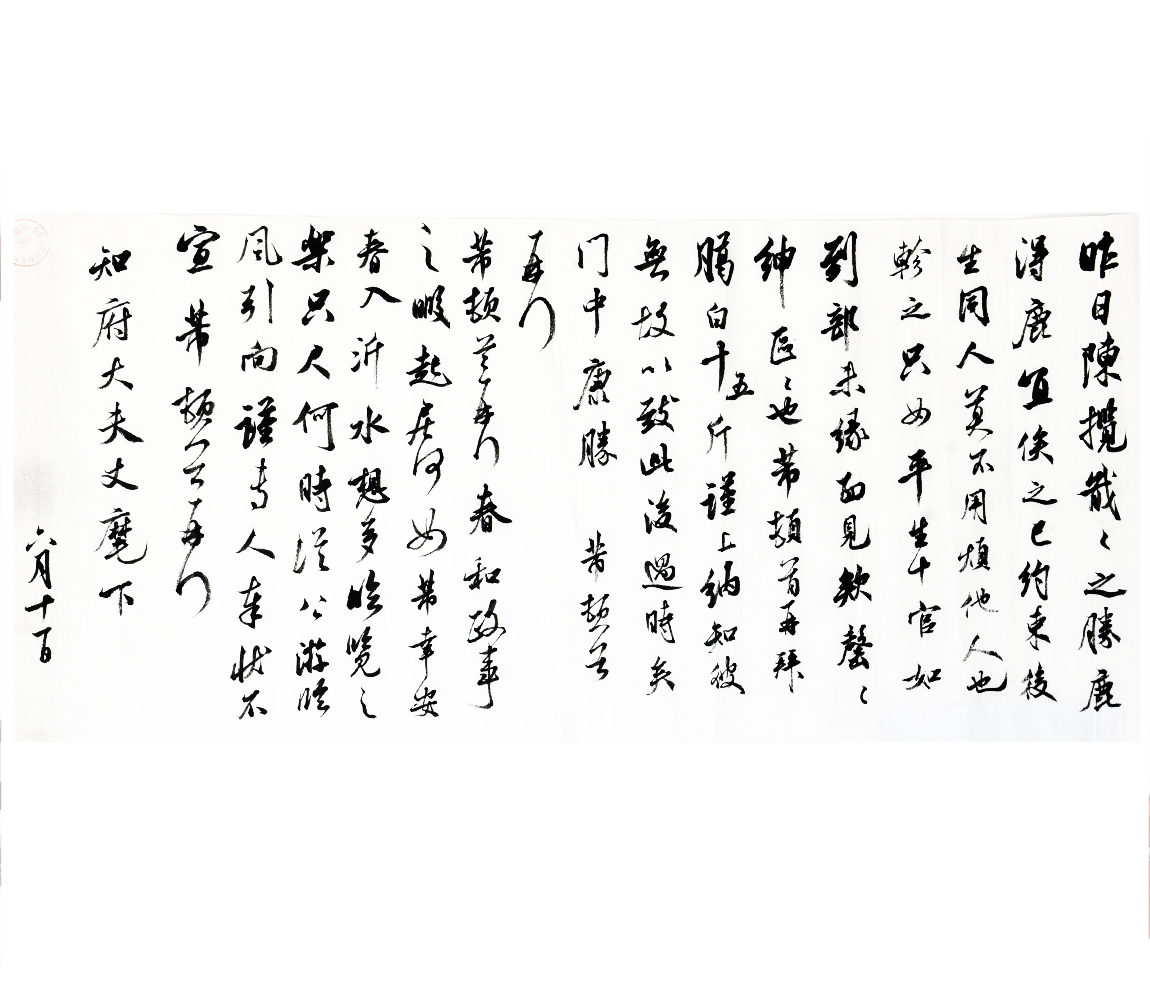 昨日陳攬戢戢之勝鹿
得鹿宜俟之已約束後
生同人莫不用煩他人也
軫之只如平生十官如
到部未緣面見欵罄罄
紳區區也芾頓首再拜
臈白十五斤謹上納知彼
無故以致此後過時矣
門中康勝 芾頓首
再拜
芾頓首再拜春和政事
之暇起居何如芾幸安
春入沂水想多臨覽之
樂只尺何時從公游臨
風引向謹專人奉狀不
宣芾頓首再拜
知府大夫丈麾下
六月十一日